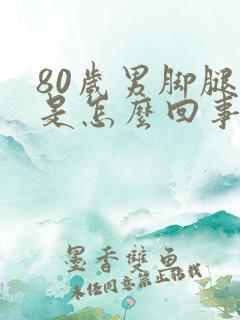 80歲男脚腿
是怎麼回事
墨香雙魚
未经同意禁止转载